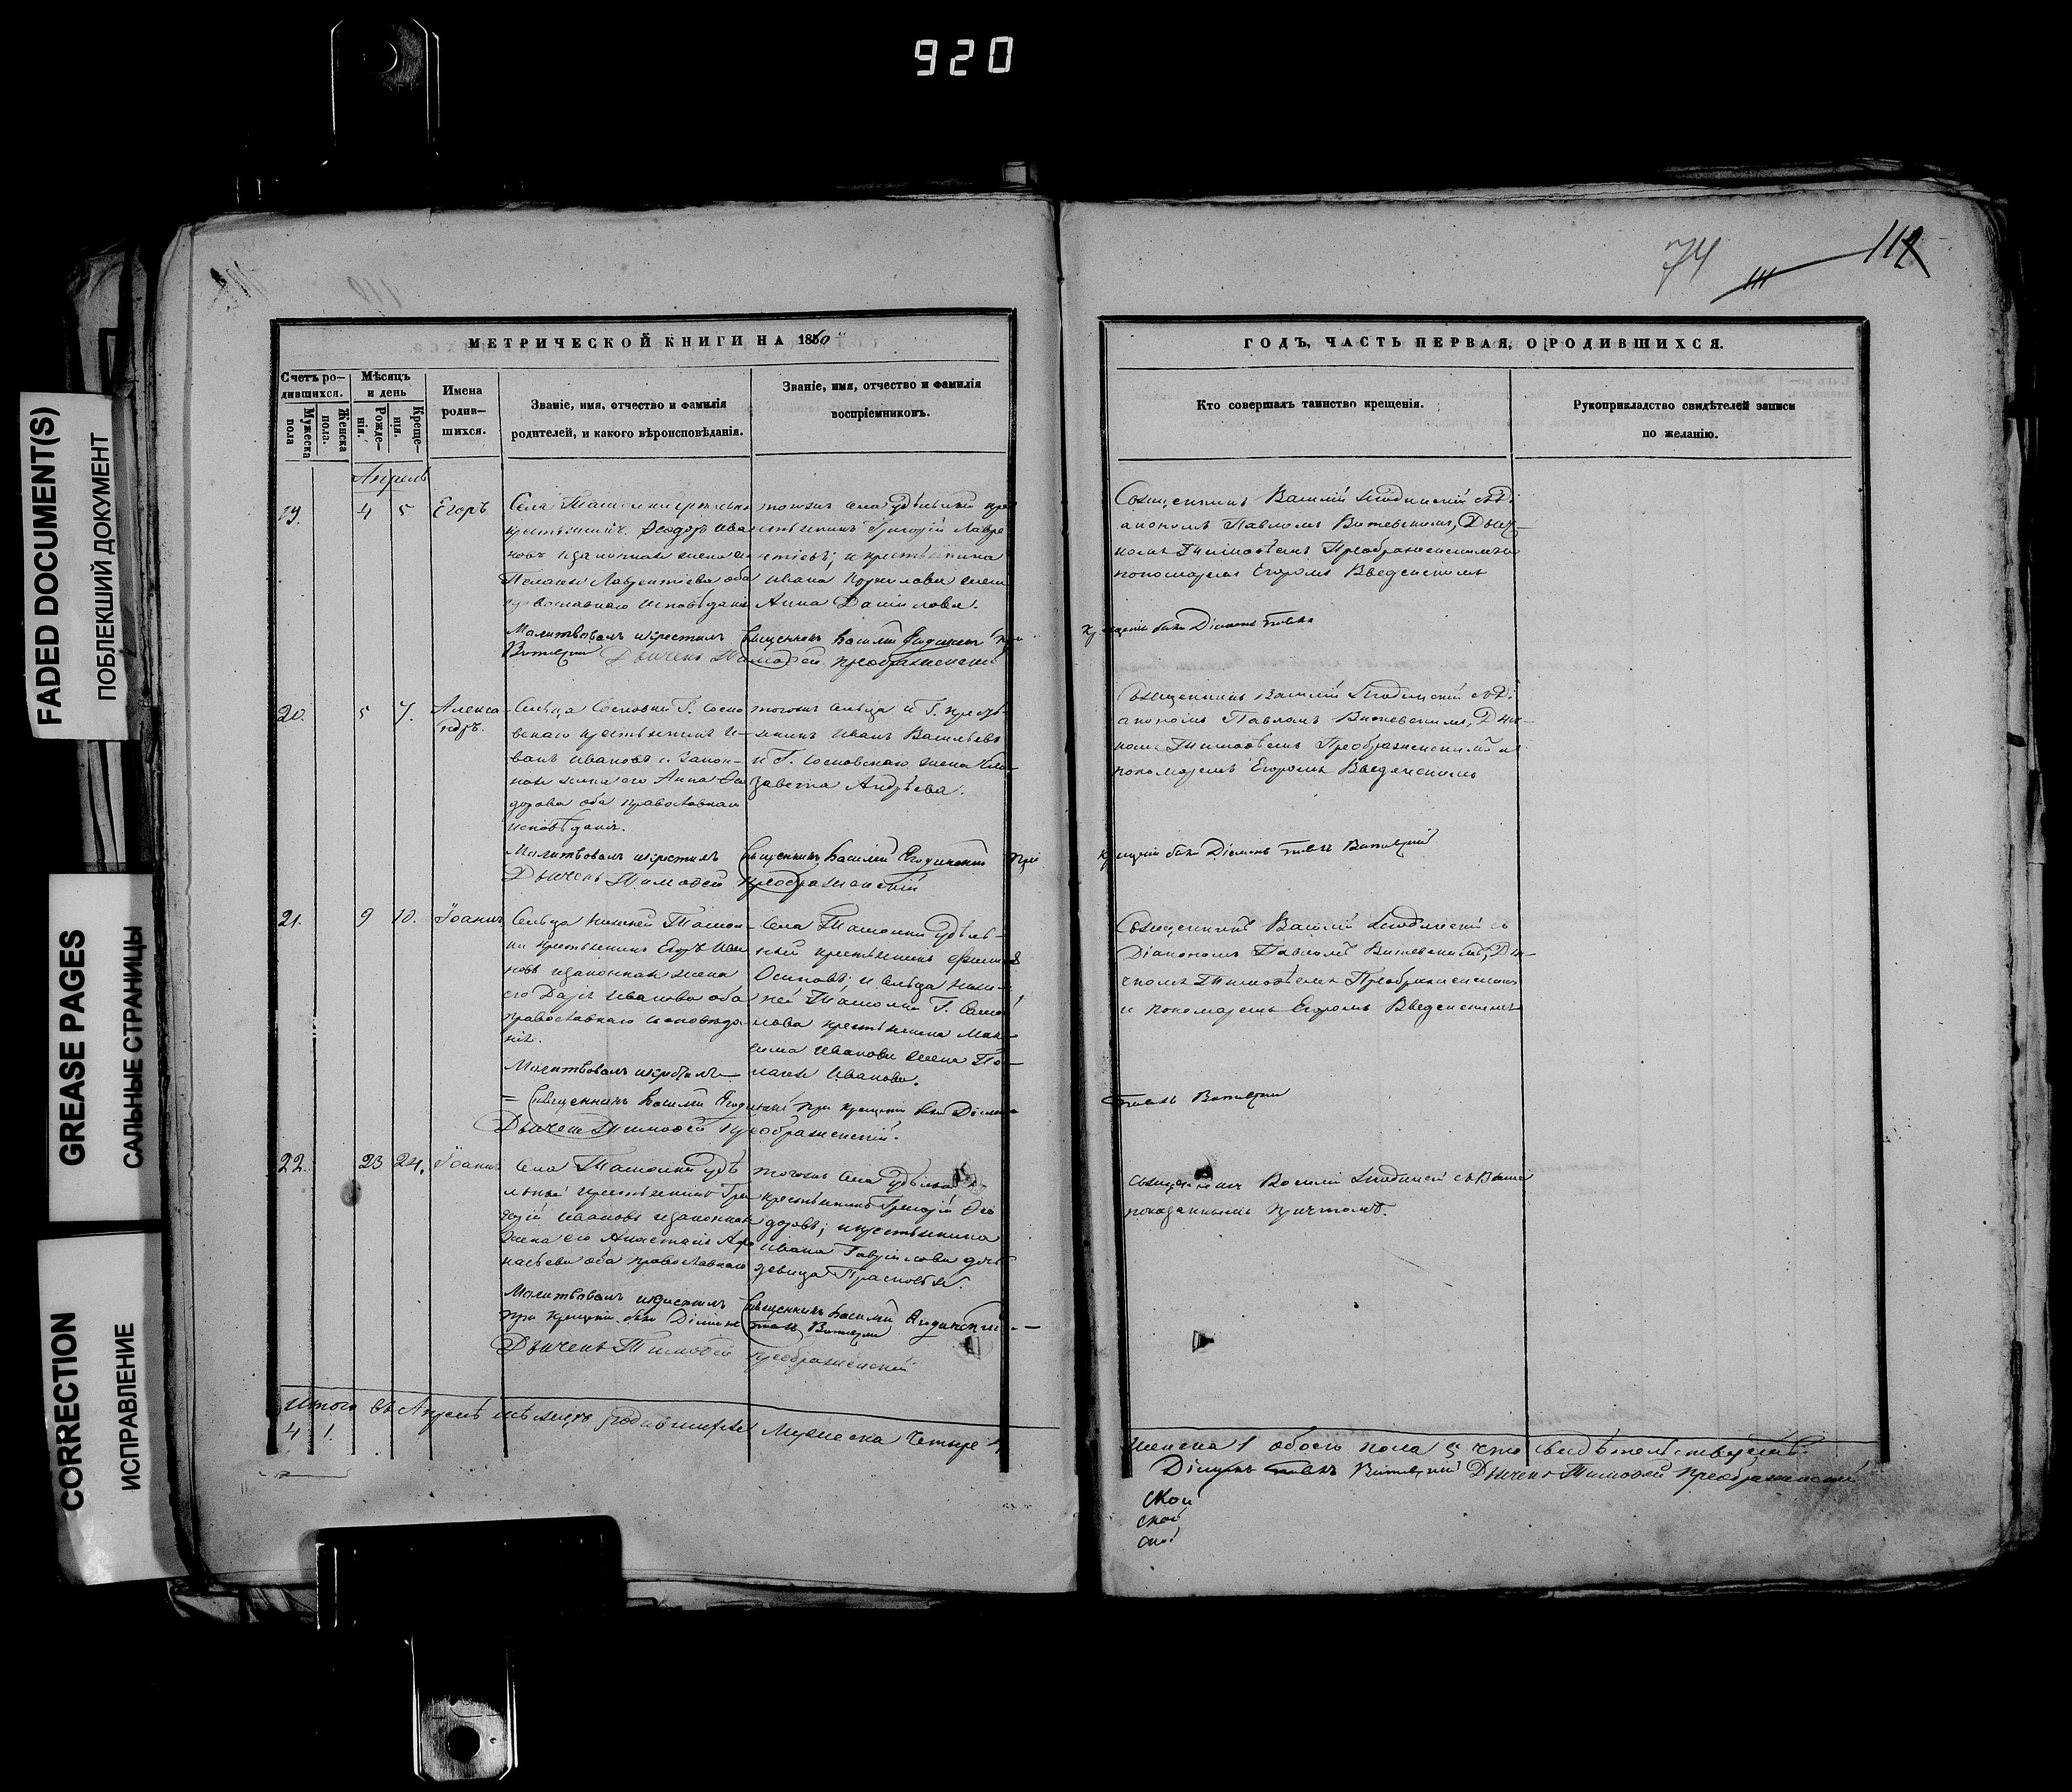 920
FADED DOCUMENT(S)
ПОБЛЕКШИЙ ДОКУМЕНТ
GREASE PAGES
САЛЬНЫЕ СТРАНИЦЫ
CORRECTION
ИСПРАВЛЕНИЕ
74
111
112
МЕТРИЧЕСКОЙ КНИГИ НА 1860
Счетъ ро-
дившихся.
Мужеска
пола
Женска
пола.
Мѣсяцъ
и день
Рожде-
нія.
Креще-
нія.
Имена
родив-
шихся.
Званіе, имя, отчество и фамилія
родителей, и какого вѣроисповѣданія.
Званіе, имя, отчество и фамилія
воспріемниковъ.
Апрель
19. 4 5 Егоръ
Села
крестьянинъ Ѳеодоръ Ива
новъ и законная жена
Пелагея Лаврентіева оба
православнаго исповѣданія
тогожъ села удѣльный кре
стьянинъ Григорій Лавре
нтіевъ; и крестьянина
Ивана жена
Анна Данилова.
Молитвовалъ и крестилъ Священникъ Василій при
Дьячекъ Тимофей Преображенскій
20. 5 7. Алекса
ндръ.
Сельца Сосновки Г. Сосно
вскаго крестьянинъ И-
ванъ Ивановъ и закон-
ная жена его Анна Ѳео
дорова оба православнаго
исповѣданія.
тогожъ сельца и Г. кресть
янинъ Иванъ Васильевъ
и Г. Сосновскаго жена Ели-
завета Андреева.
Молитвовалъ и крестилъ Священникъ Василій при
Дьячекъ Тимофей Преображенскій
21. 9 10. Іоаннъ
Сельца Нижней Ташол-
ки крестьянинъ Егоръ Ива
новъ и законная жена
его Дарья Иванова оба
православнаго исповѣда-
нія.
Села Ташолки удѣль-
ный крестьянинъ
Осиповъ; и сельца Ниж-
ней Ташолки Г.
крестьянина Мак-
сима Иванова жена Пе-
лагея Иванова.
Молитвовалъ и крестилъ
Священникъ Василій при крещеніи былъ Діаконъ
Дьячекъ Тимофей Преображенскій.
22. 23 24. Іоаннъ
Села Ташолки удѣ
льный крестьянинъ Гри
горій Ивановъ и законная
жена его Анастасія Афа
насьева оба православнаго
тогожъ села удѣльный
крестьянинъ Григорій Ѳео
доровъ; и крестьянина
Ивана Гаврилова дочь
девица Прасковья.
Молитвовалъ и крестилъ Священникъ Василій
при крещеніи былъ Діаконъ Павелъ
Дьячекъ Тимофей Преображенскій
Итого въ Апреле месяце родившихся Мужеска четыре 4
4 1.
ГОДЪ, ЧАСТЬ ПЕРВАЯ, О РОДИВШИХСЯ.
Кто совершалъ таинство крещенія.
Рукоприкладство свидѣтелей записи
по желанію.
Священникъ Василій съ Ді
акономъ Павломъ Дьяч-
комъ Тимофѣемъ Преображенскимъ и
пономаремъ Егоромъ Введенскимъ
крещеніи былъ Діаконъ Павелъ
Священникъ Василій съ Ді
акономъ Павломъ Дьяч-
комъ Тимофѣемъ Преображенскимъ и
пономаремъ Егоромъ Введенскимъ
крещеніи былъ Діаконъ Павелъ
Священникъ Василій съ
Діакономъ Павломъ Дья-
чкомъ Тимофѣемъ Преображенскимъ
и пономаремъ Егоромъ Введенскимъ
Павелъ
Священникъ Василій съ выше
показаннымъ причтомъ.
женска 1 обоего пола 5 что свидѣтельствуемъ.
Діаконъ Павелъ Дьячекъ Тимофей Преображенскій
ской
ской
ской